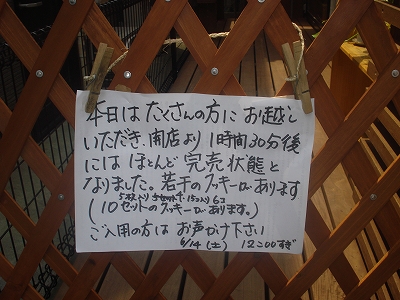 本日は たくさんの方に お越し
いただき、開店より 1時間30分後
には ほとんど 完売状態と
なりました。若干の クッキーはあります
5枚入り
(10セットのクッキーはあります。)
ご入用の方は お声がけ下さい
6/14(土) 12:00すぎ